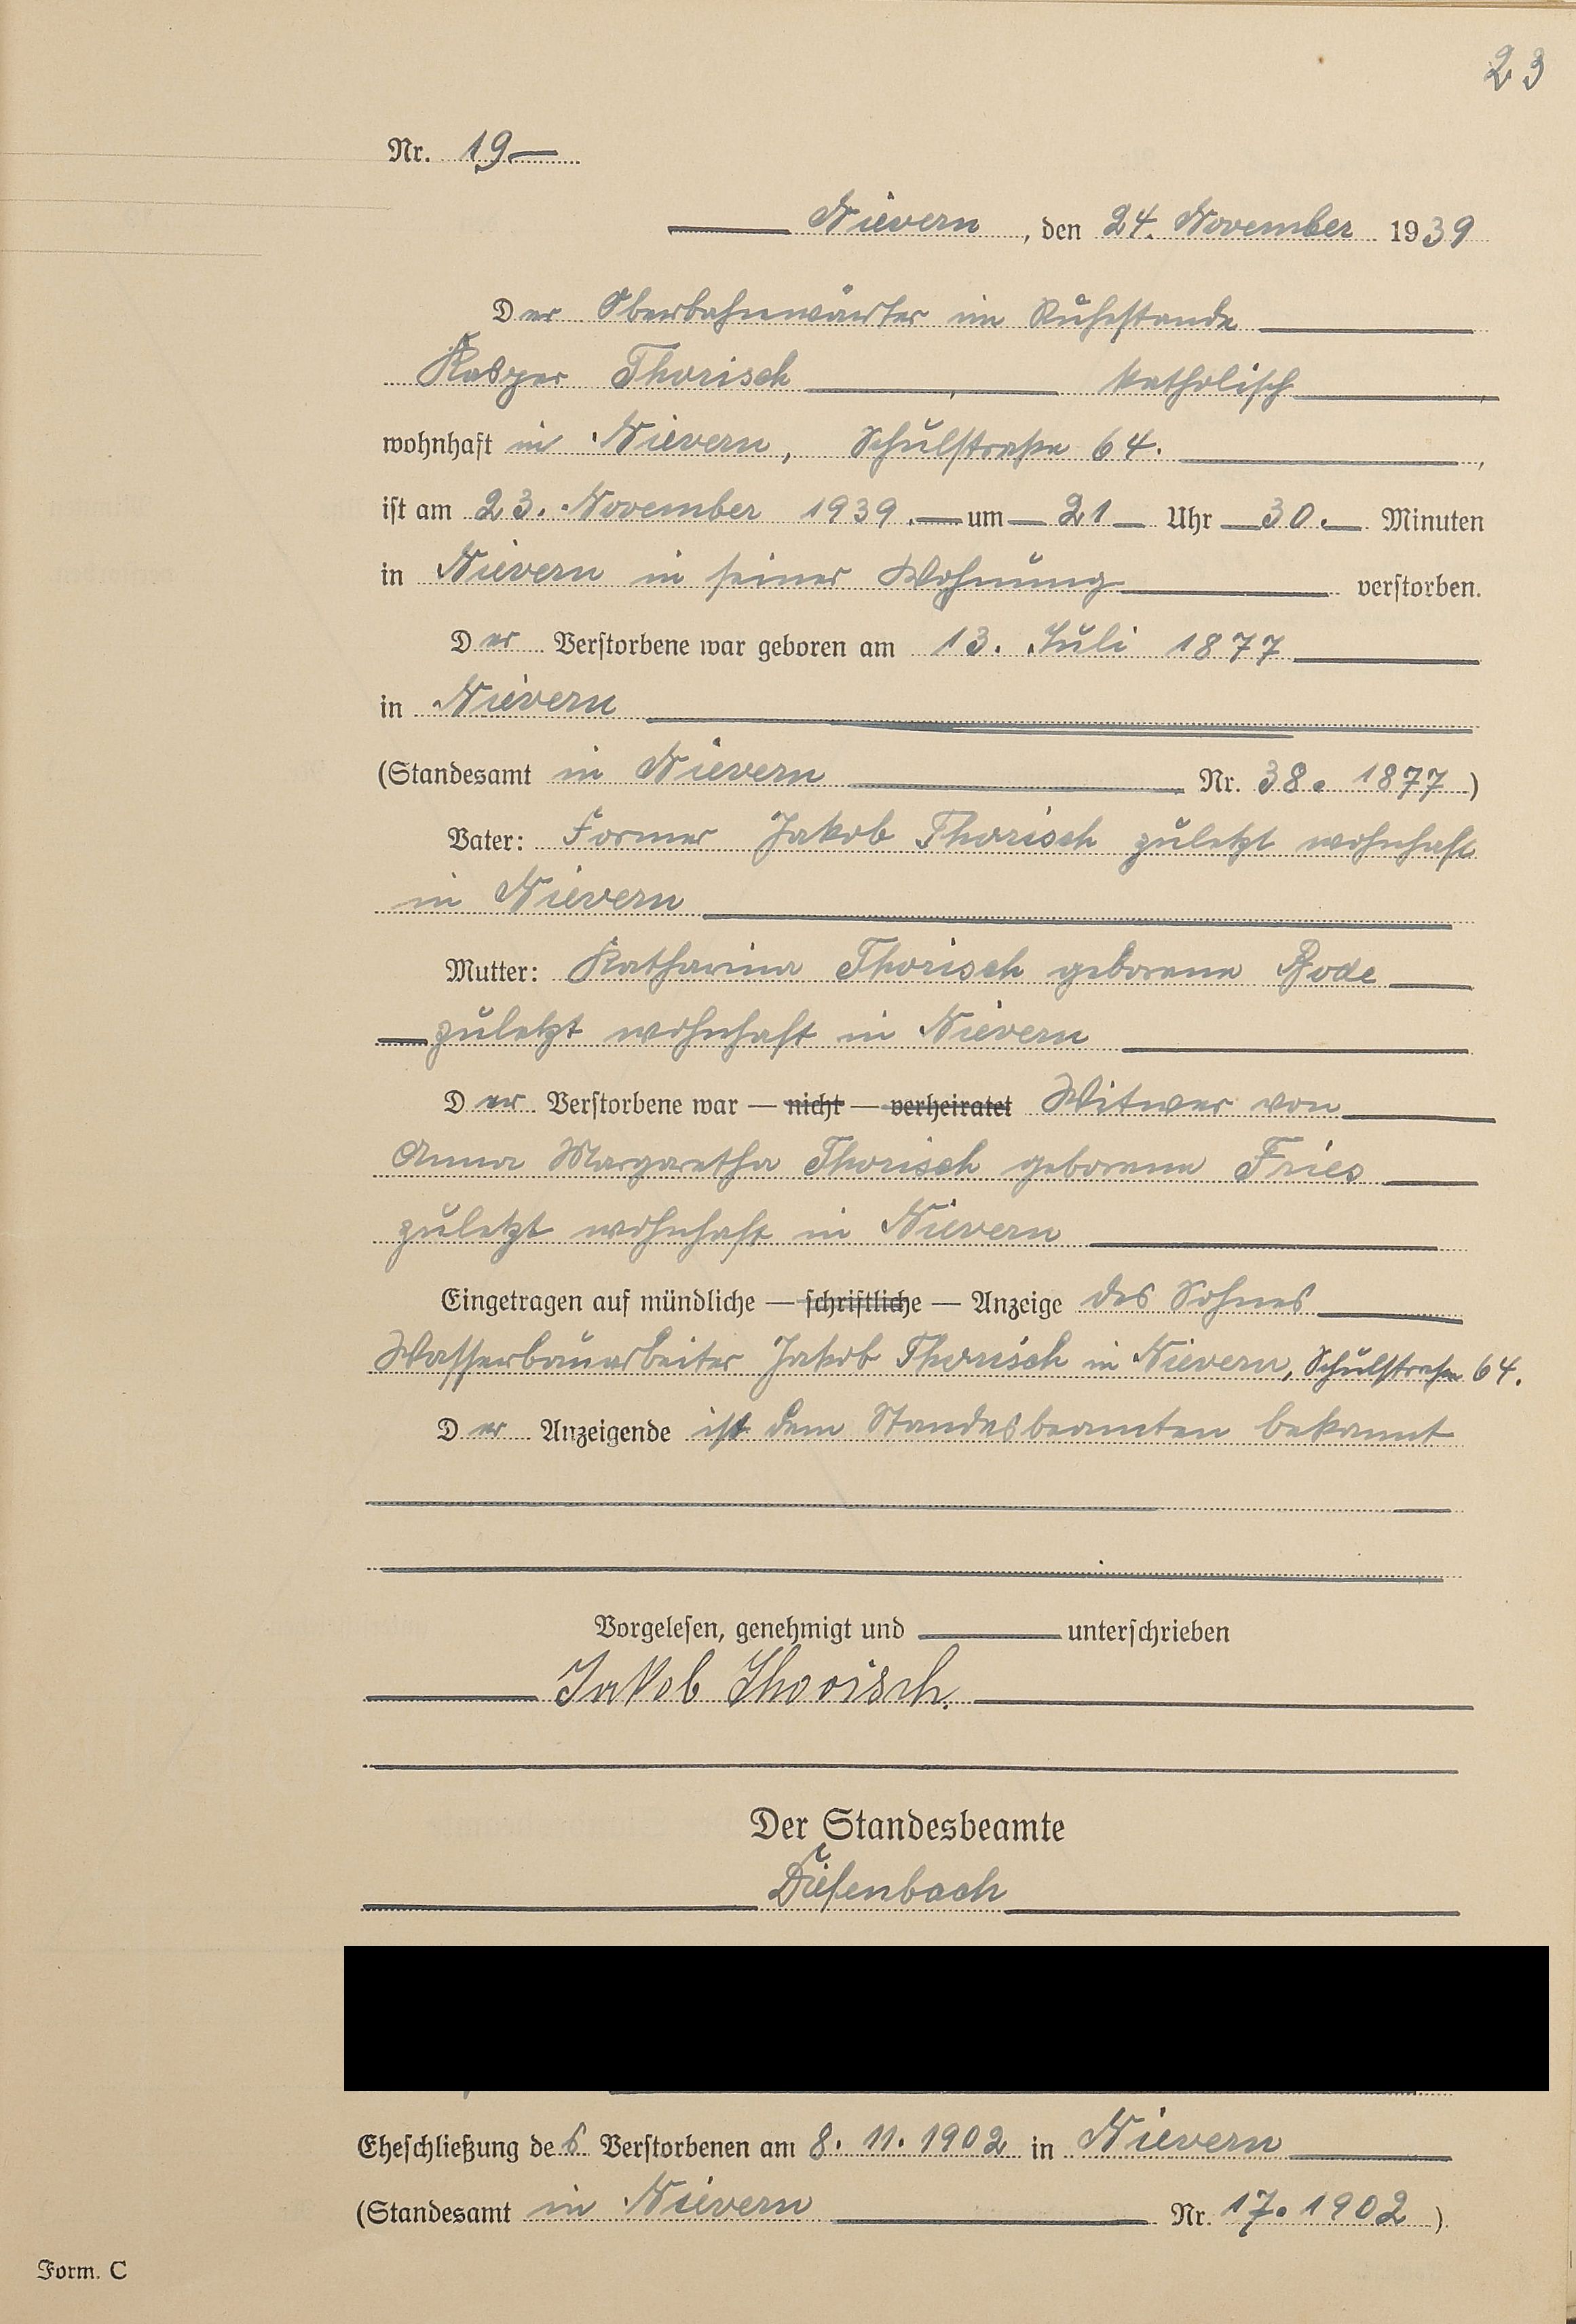 23
Nr. 19
Nievern, den 24. November 1939
Der Oberbahnwärter im Ruhestande
Kasper Thorisch, katholisch,
wohnhaft in Nievern, Schulstraße 64.,
ist am 23. November 1939. um 21 Uhr 30. Minuten
in Nievern in seiner Wohnung verstorben.
Der Verstorbene war geboren am 13. Juli 1877
in Nievern
(Standesamt in Nievern Nr. 38. 1877)
Vater: Former Jakob Thorisch zuletzt wohnhaft
in Nievern
Mutter: Katharina Thorisch geborene Bode
zuletzt wohnhaft in Nievern
Der Verstorbene war — nicht — verheiratet Witwer von
Anna Margaretha Thorisch geborene Fries
zuletzt wohnhaft in Nievern
Eingetragen auf mündliche — schriftliche — Anzeige des Sohnes
Wasserbauarbeiter Jakob Thorisch in Nievern, Schulstraße 64.
Der Anzeigende ist dem Standesbeamten bekannt
Vorgelesen, genehmigt und unterschrieben
Jakob Thorisch.
Der Standesbeamte
Diefenbach
Eheschließung des Verstorbenen am 8. 11. 1902 in Nievern
(Standesamt in Nievern Nr. 17. 1902)
Form. C